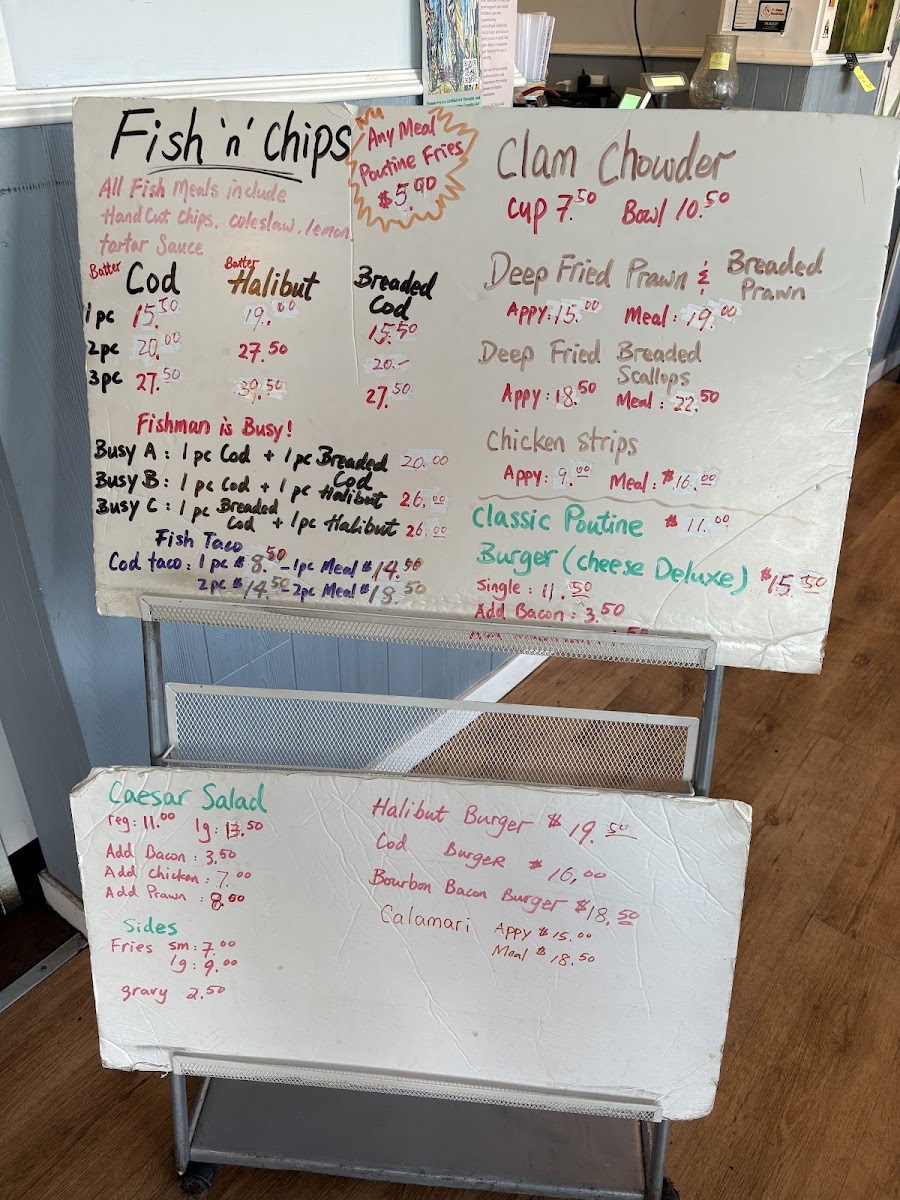 Fish 'n' Chips
Any Meal
Poutine Fries
$5.00
All Fish Meals include
Hand Cut Chips. coleslaw. lemon
tartar Sauce
Batter Cod Batter Halibut Breaded Cod
1pc 15.50 19.00 15.50
2pc 20.00 27.50 20.-
3pc 27.50 39.50 27.50
Fishman is Busy!
Busy A: 1 pc Cod + 1 pc Breaded Cod 20.00
Busy B: 1 pc Cod + 1 pc Halibut 26.00
Busy C: 1 pc Breaded Cod + 1pc Halibut 26.00
Fish Taco
Cod taco: 1 pc $8.50 - 1pc Meal $14.50
2pc $14.50 - 2pc Meal $18.50
Clam Chowder
Cup 7.50 Bowl 10.50
Deep Fried Prawn & Breaded Prawn
Appy: 15.00 Meal: 19.00
Deep Fried Breaded Scallops
Appy: 18.50 Meal: 22.50
Chicken Strips
Appy: 9.00 Meal: $16.00
Classic Poutine $11.00
Burger (cheese Deluxe) $15.50
Single: 11.50
Add Bacon: 3.50
Caesar Salad
reg: 11.00 lg: 13.50
Add Bacon: 3.50
Add Chicken: 7.00
Add Prawn: 8.00
Sides
Fries sm: 7.00
lg: 9.00
gravy 2.50
Halibut Burger $19.50
Cod Burger $16,00
Bourbon Bacon Burger $18,50
Calamari Appy $15.00
Meal $18.50